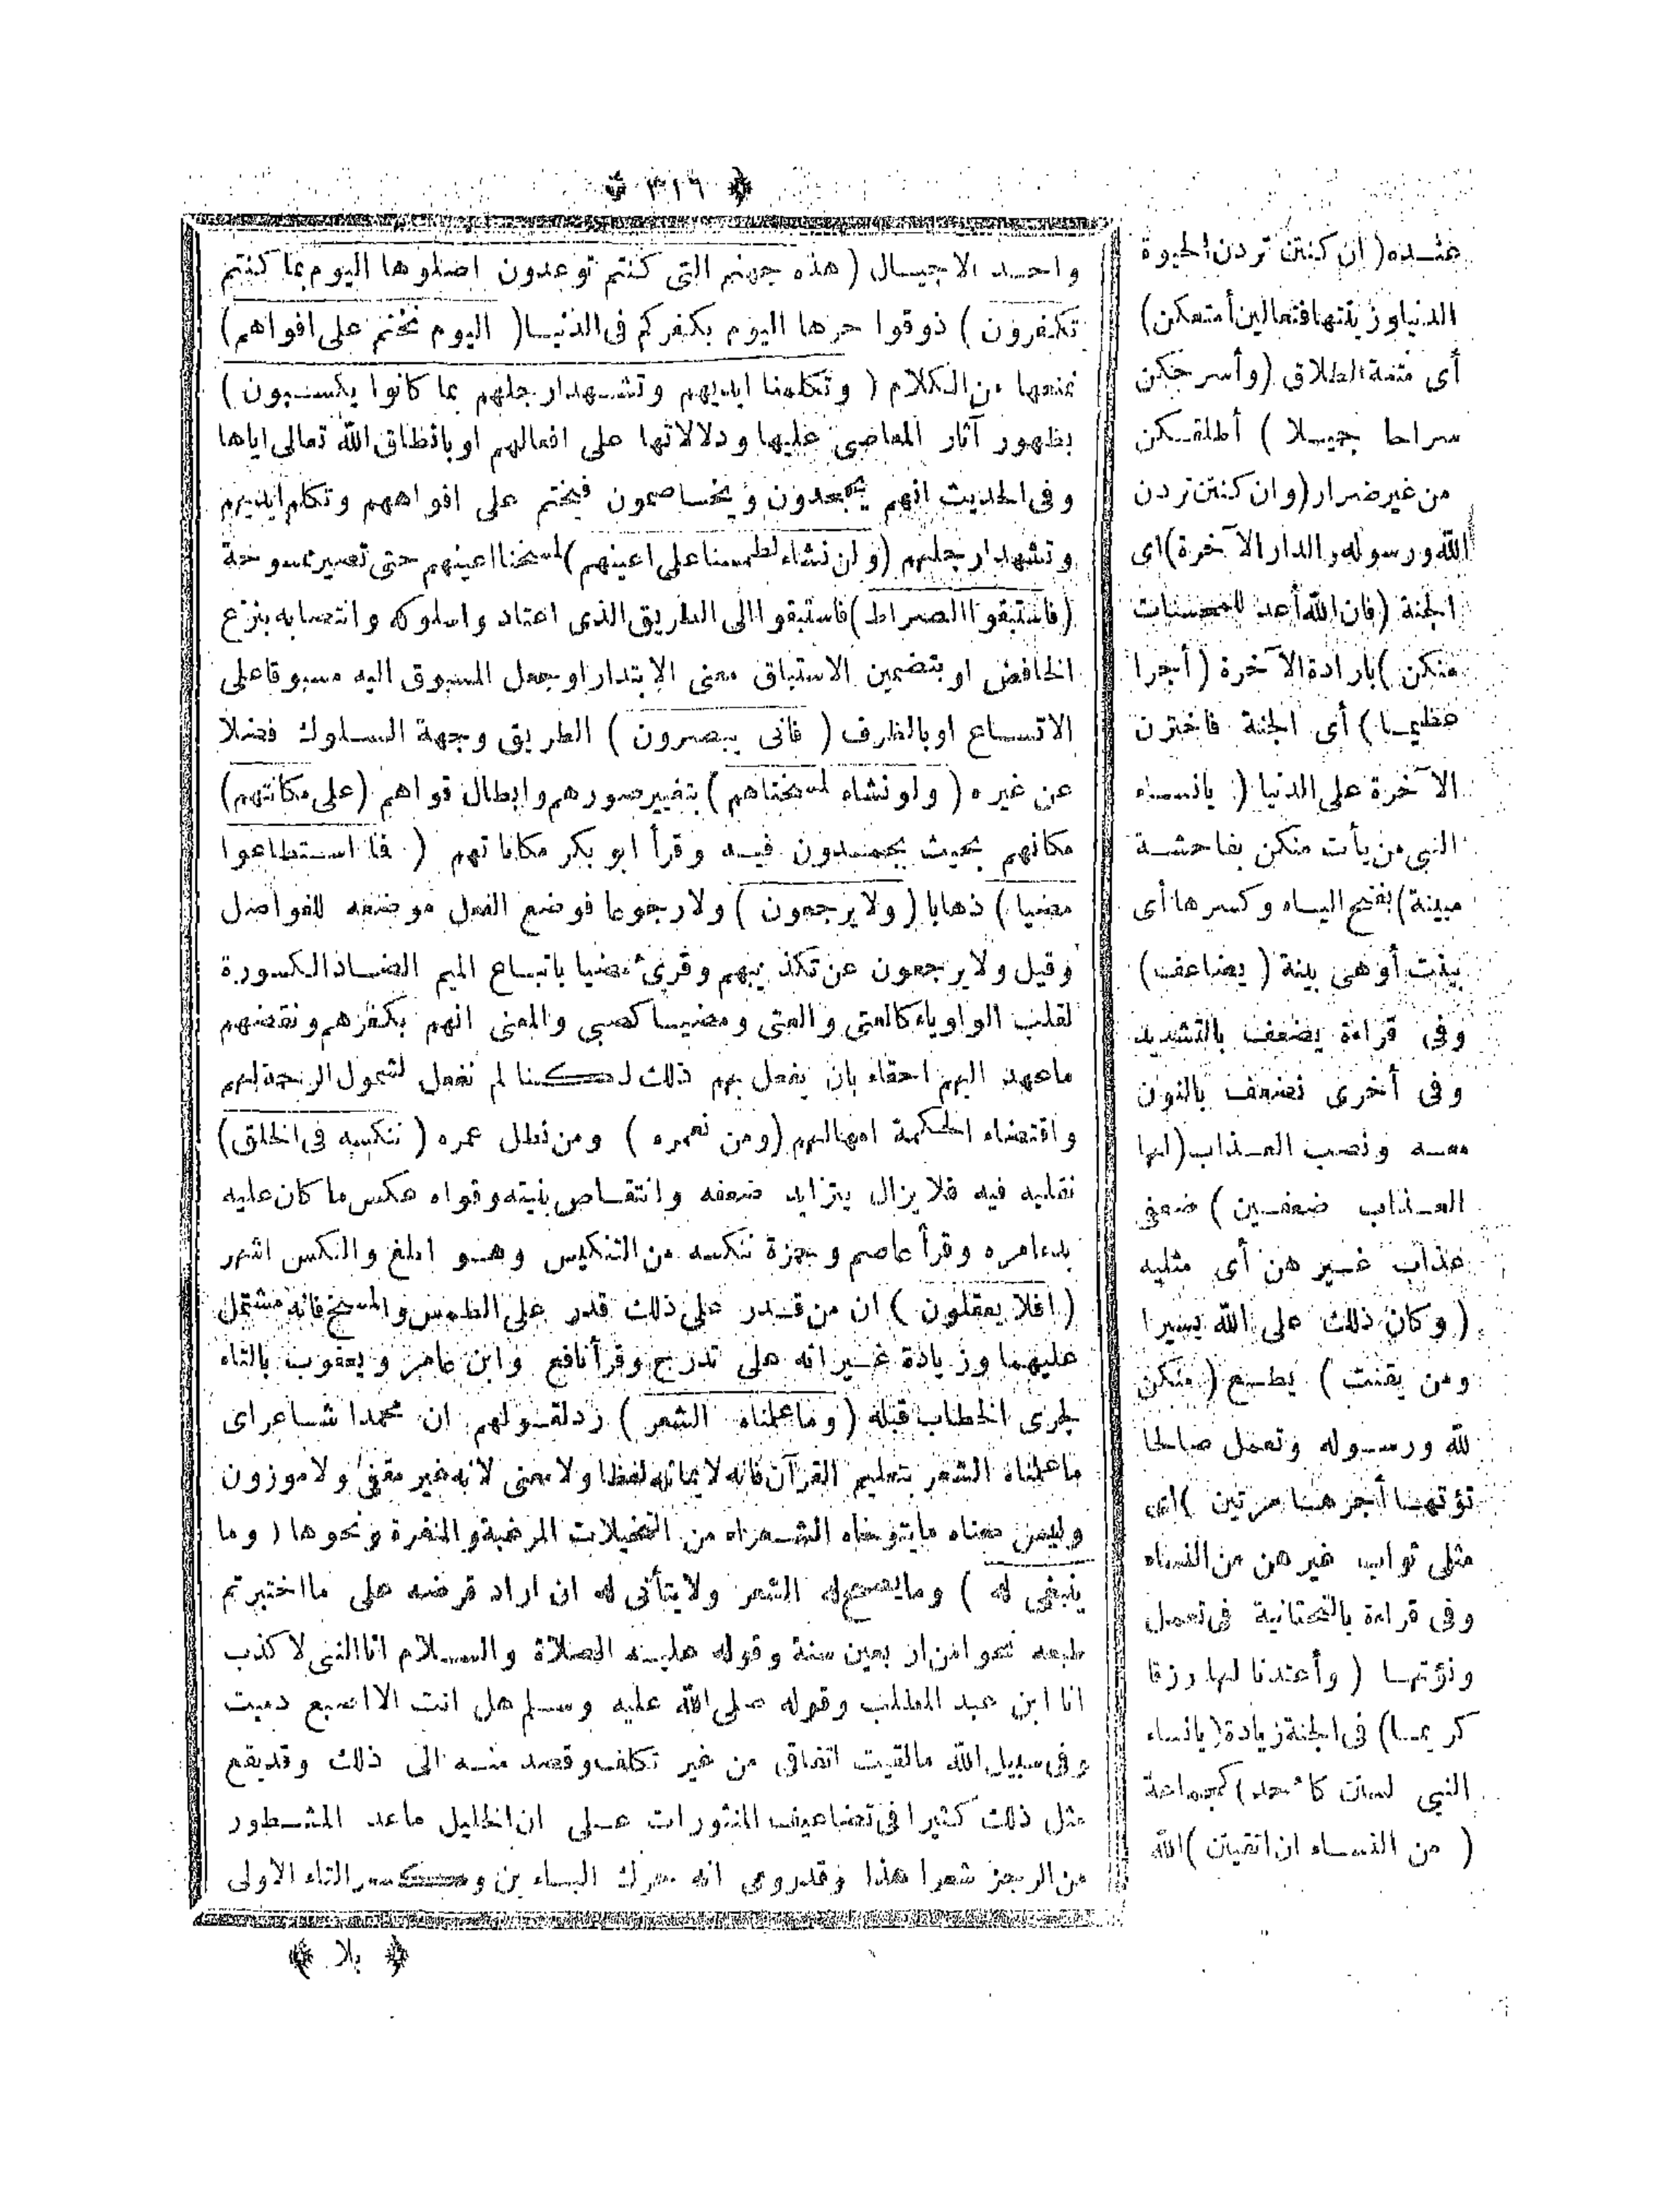 ﴿ ٣١٦ ﴾
واحد الاجيال ( هذه جهنم التى كنتم توعدون اصلوها اليوم بما كنتم
تكفرون ) ذوقوا حرها اليوم بكفركم فى الدنيا ( اليوم نختم على افواههم )
نمنعها من الكلام ( وتكلمنا ايديهم وتشهد ارجلهم بما كانوا يكسبون )
بظهور آثار المعاصى عليها ودلالاتها على افعالهم او بانطاق الله تعالى اياها
وفى الحديث انهم يجحدون ويخاصمون فيختم على افواههم وتكلم ايديهم
وتشهد ارجلهم ( ولو نشاء لطمسنا على اعينهم ) لمسخنا اعينهم حتى تصير ممسوحة
( فاستبقوا الصراط ) فاستبقوا الى الطريق الذى اعتادوا سلوكه وانتصابه بنزع
الخافض او بتضمين الاستباق معنى الابتدار او جعل المسبوق اليه مسبوقا على
الاتساع او بالظرف ( فانى يبصرون ) الطريق وجهة السلوك فضلا
عن غيره ( ولو نشاء لمسخناهم ) بتغيير صورهم وابطال قواهم ( على مكانتهم )
مكانهم بحيث يجمدون فيه وقرأ ابو بكر مكاناتهم ( فا استطاعوا
مضيا ) ذهابا ( ولا يرجعون ) ولا رجوعا فوضع الفعل موضعه للفواصل
وقيل ولا يرجعون عن تكذيبهم وقرئ مضيا باتباع الميم الضاد المكسورة
لقلب الواو ياء كالعتى والعتى ومضيا كصبى والمعنى انهم بكفرهم ونقضهم
ماعهد اليهم احقاء بان يفعل بهم ذلك لكنا لم نفعل لشمول الرحمة لهم
واقتضاء الحكمة امهالهم ( ومن نعمره ) ومن نطل عمره ( ننكسه فى الخلق )
نقلبه فيه فلا يزال يتزايد ضعفه وانتقاص بنيته وقواه عكس ما كان عليه
بدء امره وقرأ عاصم وحمزة ننكسه من التنكيس وهو ابلغ والنكس اشهر
( افلا يعقلون ) ان من قدر على ذلك قدر على الطمس والمسخ فانه مشتمل
عليهما وزيادة غير انه على تدرج وقرأ نافع وابن عامر ويعقوب بالتاء
لجرى الخطاب قبله ( وما علمناه الشعر ) رد لقولهم ان محمدا شاعر اى
ما علمناه الشعر بتعليم القرآن فانه لا يماثله لفظا ولا معنى لانه غير مقفى ولا موزون
وليس معناه ما يتوخاه الشعراء من التخيلات المرغبة والمنفرة ونحوها ( وما
ينبغى له ) وما يصح له الشعر ولا يتأتى له ان اراد قرضه على ما اختبرتم
طبعه نحوا من اربعين سنة وقوله عليه الصلاة والسلام انا النبى لا كذب
انا ابن عبد المطلب وقوله صلى الله عليه وسلم هل انت الا اصبع دميت
وفى سبيل الله مالقيت اتفاقى من غير تكلف وقصد منه الى ذلك وقد يقع
مثل ذلك كثيرا فى تضاعيف المنثورات على ان الخليل ماعد المشطور
من الرجز شعرا هذا وقد روى انه حرك الباءين وكسر التاء الاولى
﴿ بلا ﴾
عنده ( ان كنتن تردن الحيوة
الدنيا وزينتها فتعالين أمتعكن )
أى متعة الطلاق ( وأسرحكن
سراحا جميلا ) أطلقكن
من غير ضرار ( وان كنتن تردن
الله ورسوله والدار الآخرة ) اى
الجنة ( فان الله أعد للمحسنات
منكن ) بارادة الآخرة ( أجرا
عظيما ) أى الجنة فاخترن
الآخرة على الدنيا ( يانساء
النبى من يأت منكن بفاحشة
مبينة ) بفتح الياء وكسرها أى
بينت أو هى بينة ( يضاعف )
وفى قراءة يضعف بالتشديد
وفى أخرى نضعف بالنون
معه ونصب العذاب ( لها
العذاب ضعفين ) ضعفى
عذاب غير هن أى مثليه
( وكان ذلك على الله يسيرا
ومن يقنت ) يطع ( منكن
لله ورسوله وتعمل صالحا
نؤتها أجرها مرتين ) اى
مثلى ثواب غير هن من النساء
وفى قراءة بالتحتانية فى تعمل
ونؤتها ( وأعتدنا لها رزقا
كريما ) فى الجنة زيادة ( يانساء
النبى لستن كأحد ) كجماعة
( من النساء ان اتقيتن ) الله